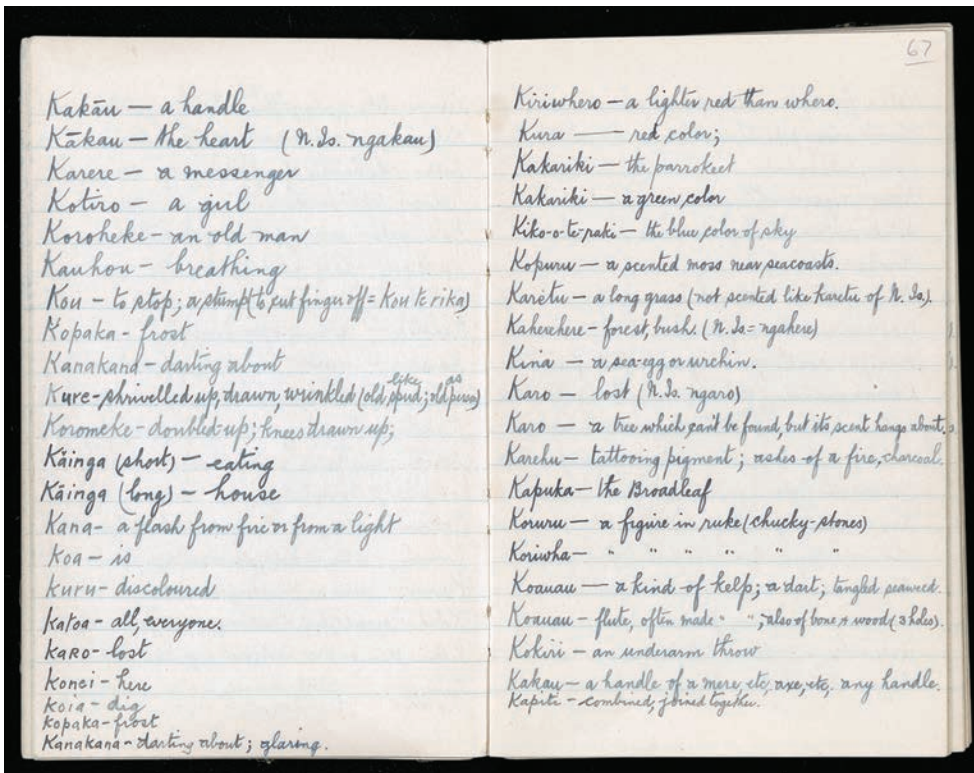 Kakāu — a handle
Kākau — the heart (N. Is. ngakau)
Karere — a messenger
Kotiro — a girl
Koroheke — an old man
Kauhou — breathing
Kou — to stop; a stump (to cut finger off = kou te rika)
Kopaka - frost
Kanakana - darting about
Kure - shrivelled up, drawn, wrinkled (old like spud; old as person)
Koromeke - doubled-up; knees drawn up;
Kāinga (short) — eating
Kāinga (long) — house
Kana - a flash from fire or from a light
Koa - is
Kuru - discoloured
Katoa - all, everyone.
Karo - lost
Konei - here
Koia - dig
Kopaka - frost
Kanakana - darting about; glaring.
67
Kiriwhero — a lighter red than whero.
Kura — red color;
Kakariki — the parrokeet
Kakariki — a green color
Kiko-o-te-raki — the blue color of sky
Kopuru — a scented moss near seacoasts.
Karetu — a long grass (not scented like karetu of N. Is.).
Kaherehere — forest, bush. (N. Is = ngahere)
Kina — a sea-egg or urchin.
Karo — lost (N. Is. ngaro)
Karo — a tree which can't be found, but its scent hangs about.
Karehu — tattooing pigment; ashes of a fire, charcoal.
Kapuka — the Broadleaf
Koruru — a figure in ruke (chucky-stones)
Koriwha — " " " " " "
Koauau — a kind of kelp; a dart; tangled seaweed.
Koauau — flute, often made " " ; also of bone & wood (3 holes).
Kokiri — an underarm throw
Kakau — a handle of a mere, etc, axe, etc. any handle.
Kapiti — combined, joined together.